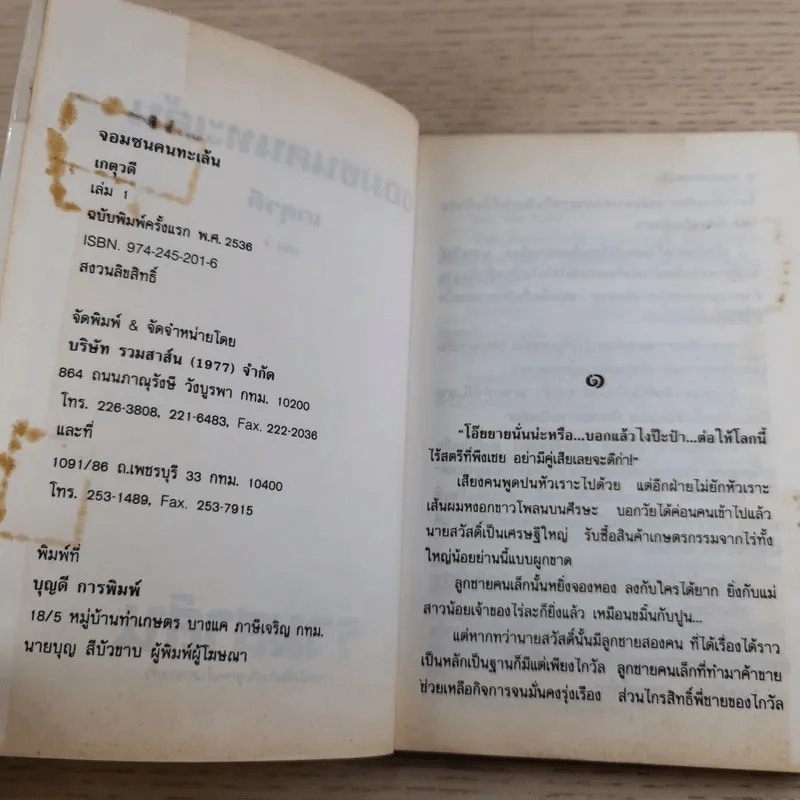 จอมซนคนทะเล้น
เกตุวดี
เล่ม 1
ฉบับพิมพ์ครั้งแรก พ.ศ. 2536
ISBN. 974-245-201-6
สงวนลิขสิทธิ์
จัดพิมพ์ & จัดจำหน่ายโดย
บริษัท รวมสาส์น (1977) จำกัด
864 ถนนภาณุรังษี วังบูรพา กทม. 10200
โทร. 226-3808, 221-6483, Fax. 222-2036
และที่
1091/86 ถ.เพชรบุรี 33 กทม. 10400
โทร. 253-1489, Fax. 253-7915
พิมพ์ที่
บุญดี การพิมพ์
18/5 หมู่บ้านท่าเกษตร บางแค ภาษีเจริญ กทม.
นายบุญ สีบัวขาบ ผู้พิมพ์ผู้โฆษณา
๑
"โอ๊ยยายนั่นน่ะหรือ...บอกแล้วไงป๊ะป๋า...ต่อให้โลกนี้
ไร้สตรีที่พึงเชย อย่ามีคู่เสียเลยจะดีก่า!"
เสียงคนพูดปนหัวเราะไปด้วย แต่อีกฝ่ายไม่ยักหัวเราะ
เส้นผมหงอกขาวโพลนบนศีรษะ บอกวัยได้ค่อนคนเข้าไปแล้ว
นายสวัสดิ์เป็นเศรษฐีใหญ่ รับซื้อสินค้าเกษตรกรรมจากไร่ทั้ง
ใหญ่น้อยย่านนี้แบบผูกขาด
ลูกชายคนเล็กนั้นหยิ่งจองหอง ลงกับใครได้ยาก ยิ่งกับแม่
สาวน้อยเจ้าของไร่ละก็ยิ่งแล้ว เหมือนขมิ้นกับปูน...
แต่หากทว่านายสวัสดิ์นั้นมีลูกชายสองคน ที่ได้เรื่องได้ราว
เป็นหลักเป็นฐานก็มีแต่เพียงไกวัล ลูกชายคนเล็กที่ทำมาค้าขาย
ช่วยเหลือกิจการจนมั่นคงรุ่งเรือง ส่วนไกรสิทธิ์พี่ชายของไกวัล